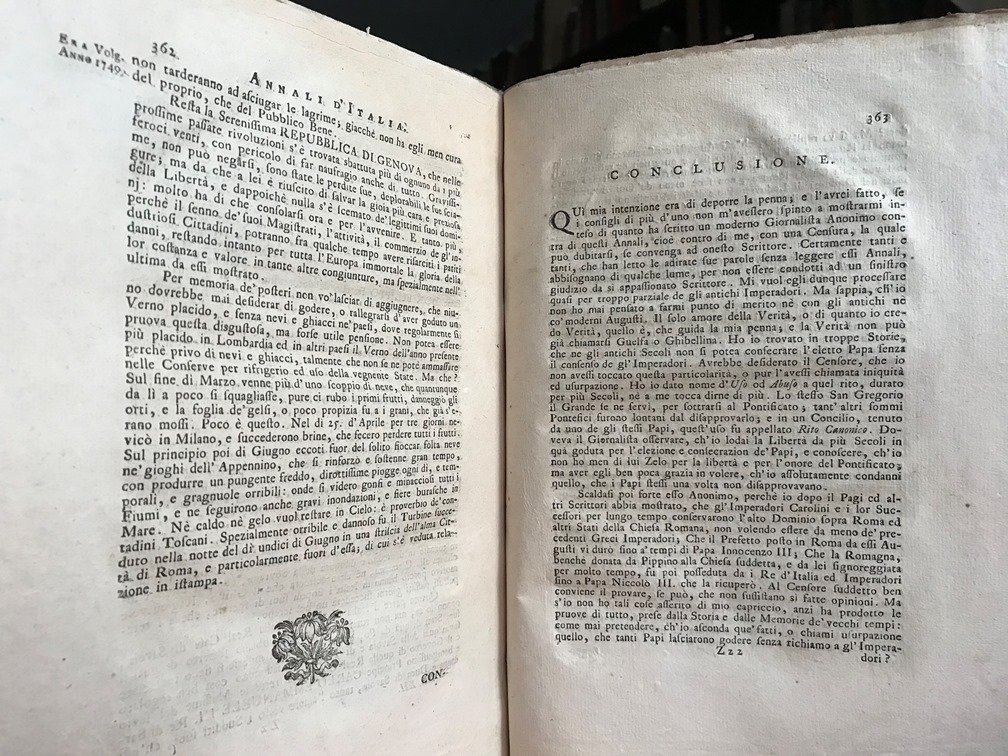 362
ANNALI D'ITALIA.
ERA Volg. non tarderanno ad asciugar le lagrime; giacchè non ha egli men cura
ANNO 1749. del proprio, che del Pubblico Bene.
Resta la Serenissima REPUBBLICA DI GENOVA, che nelle
prossime passate rivoluzioni s'è trovata sbattuta più di ognuno da i più
feroci venti, con pericolo di far naufragio anche di tutto. Gravissi-
me, non può negarsi, sono state le perdite sue, deplorabili le sue scia-
gure; ma da che a lei è riuscito di salvar la gioia più cara e preziosa
della Libertà, e dappoichè nulla s'è scemato de' legittimi suoi domi-
nj: molto ha di che consolarsi ora e per l'avvenire. E tanto più,
perchè il senno de' suoi Magistrati, l'attività, il commerzio de gl'in-
dustriosi Cittadini, potranno fra qualche tempo avere risarciti i patiti
danni, restando intanto per tutta l'Europa immortale la gloria della
lor costanza e valore in tante altre congiunture, ma spezialmente nell'
ultima da essi mostrato.
Per memoria de' posteri non vo' lasciar di aggiugnere, che niu-
no dovrebbe mai desiderar di godere, o rallegrarsi d'aver goduto un
Verno placido, e senza nevi e ghiacci ne' paesi, dove regolarmente si
pruova questa disgustosa, ma forse utile pensione. Non potea essere
più placido in Lombardia ed in altri paesi il Verno dell'anno presente
perchè privo di nevi e ghiacci, talmente che non se ne potè ammassare
nelle Conserve per rifrigerio ed uso della vegnente State. Ma che?
Sul fine di Marzo venne più d'uno scoppio di neve, che quantunque
da lì a poco si squagliasse, pure ci rubò i primi frutti, danneggiò gli
orti, e la foglia de' gelsi, o poco propizia fu a i grani, che già s'e-
rano mossi. Poco è questo. Nel dì 25. d'Aprile per tre giorni ne-
vicò in Milano, e succederono brine, che fecero perdere tutti i frutti.
Sul principio poi di Giugno eccoti fuor del solito fioccar folta neve
ne' gioghi dell'Appennino, che si rinforzò e sostenne gran tempo,
con produrre un pungente freddo, dirottissime piogge ogni dì, e tem-
porali, e gragnuole orribili: onde si videro gonfi e minacciosi tutti i
Fiumi, e ne seguirono anche gravi inondazioni, e fiere burasche in
Mare. Nè caldo nè gelo vuol restare in Cielo: è proverbio de' con-
tadini Toscani. Spezialmente orribile e dannoso fu il Turbine succe-
duto nella notte del dì undici di Giugno in una striscia dell'alma Cit-
tà di Roma, e particolarmente fuori d'essa; di cui s'è veduta rela-
zione in istampa.
CON-
363
CONCLUSIONE.
QUì mia intenzione era di deporre la penna; e l'avrei fatto, se
i consigli di più d'uno non m'avessero spinto a mostrarmi in-
teso di quanto ha scritto un moderno Giornalista Anonimo con-
tra di questi Annali, cioè contro di me, con una Censura, la quale
può dubitarsi, se convenga ad onesto Scrittore. Certamente tanti e
tanti, che han letto le adirate sue parole senza leggere essi Annali,
abbisognano di qualche lume, per non essere condotti ad un sinistro
giudizio da sì appassionato Scrittore. Mi vuol egli dunque processare
quasi per troppo parziale de gli antichi Imperadori. Ma sappia, ch'io
non ho mai pensato a farmi punto di merito nè con gli antichi nè
co' moderni Augusti. Il solo amore della Verità, o di quanto io cre-
do Verità, quello è, che guida la mia penna; e la Verità non può
già chiamarsi Guelfa o Ghibellina. Ho io trovato in troppe Storie,
che ne gli antichi Secoli non si potea consecrare l'eletto Papa senza
il consenso de gl'Imperadori. Avrebbe desiderato il Censore, che io
non avessi toccato questa particolarità, o pur l'avessi chiamata iniquità
ed usurpazione. Ho io dato nome d'Uso od Abuso a quel rito, durato
per più Secoli, nè a me tocca dirne di più. Lo stesso San Gregorio
il Grande se ne servì, per sottrarsi al Pontificato; tant'altri sommi
Pontefici furono lontani dal disapprovarlo; e in un Concilio, tenuto
da uno de gli stessi Papi, quest'uso fu appellato Rito Canonico. Do-
veva il Giornalista osservare, ch'io lodai la Libertà da più Secoli in
quà goduta per l'elezione e consecrazion de' Papi, e conoscere, ch'io
non ho men di lui Zelo per la libertà e per l'onore del Pontificato;
ma aver egli ben poca grazia in volere, ch'io assolutamente condanni
quello, che i Papi stessi una volta non disapprovavano.
Scaldasi poi forte esso Anonimo, perchè io dopo il Pagi ed al-
tri Scrittori abbia mostrato, che gl'Imperadori Carolini e i lor Suc-
cessori per lungo tempo conservarono l'alto Dominio sopra Roma ed
altri Stati della Chiesa Romana, non volendo essere da meno de' pre-
cedenti Greci Imperadori; Che il Prefetto posto in Roma da essi Au-
gusti vi durò sino a' tempi di Papa Innocenzo III; Che la Romagna,
benchè donata da Pippino alla Chiesa suddetta, e da lei signoreggiata
per molto tempo, fu poi posseduta da i Re d'Italia ed Imperadori
sino a Papa Niccolò III. che la ricuperò. Al Censore suddetto ben
conviene il provare, se può, che non sussistano sì fatte opinioni. Ma
s'io non ho tali cose asserito di mio capriccio, anzi ho prodotto le
pruove di tutto, prese dalla Storia e dalle Memorie de' vecchi tempi:
come mai pretendere, ch'io asconda que' fatti, o chiami usurpazione
quello, che tanti Papi lasciarono godere senza richiamo a gl'Impera-
Zzz 2
dori?